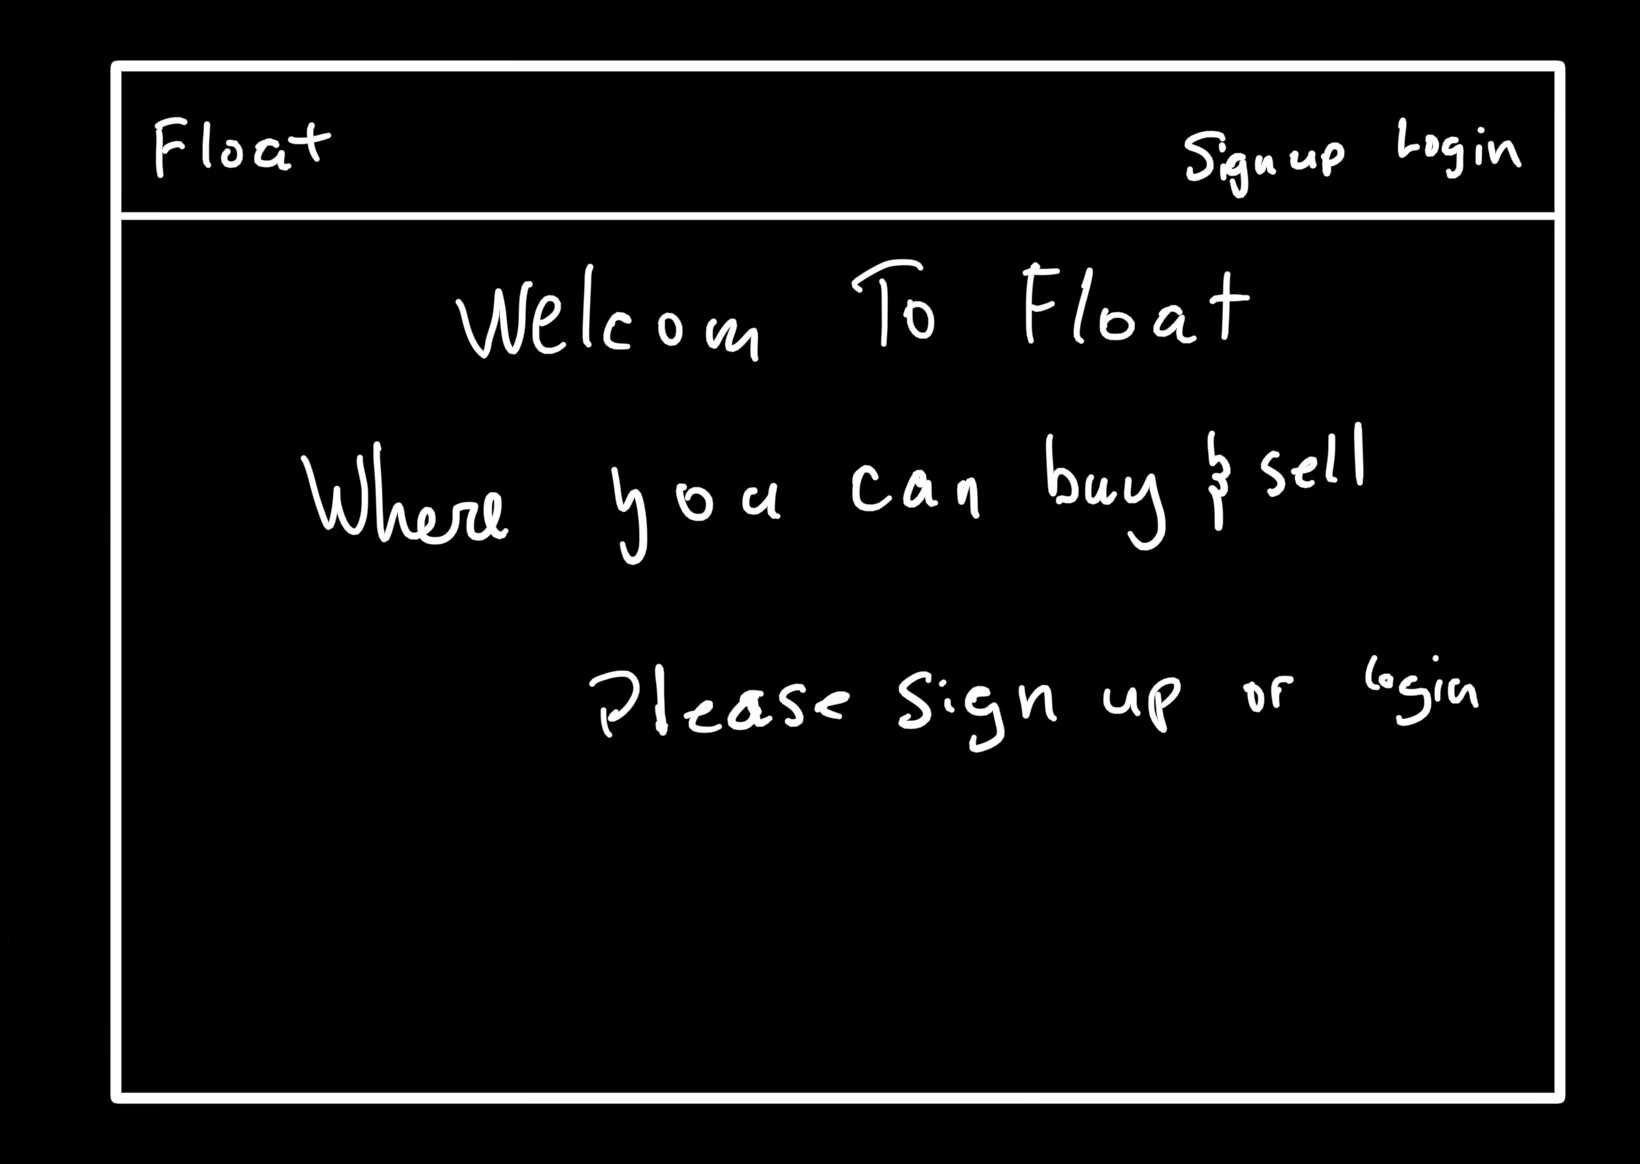 Float
Sign up Login
Welcom To Float
Where you can buy & sell
Please sign up or login